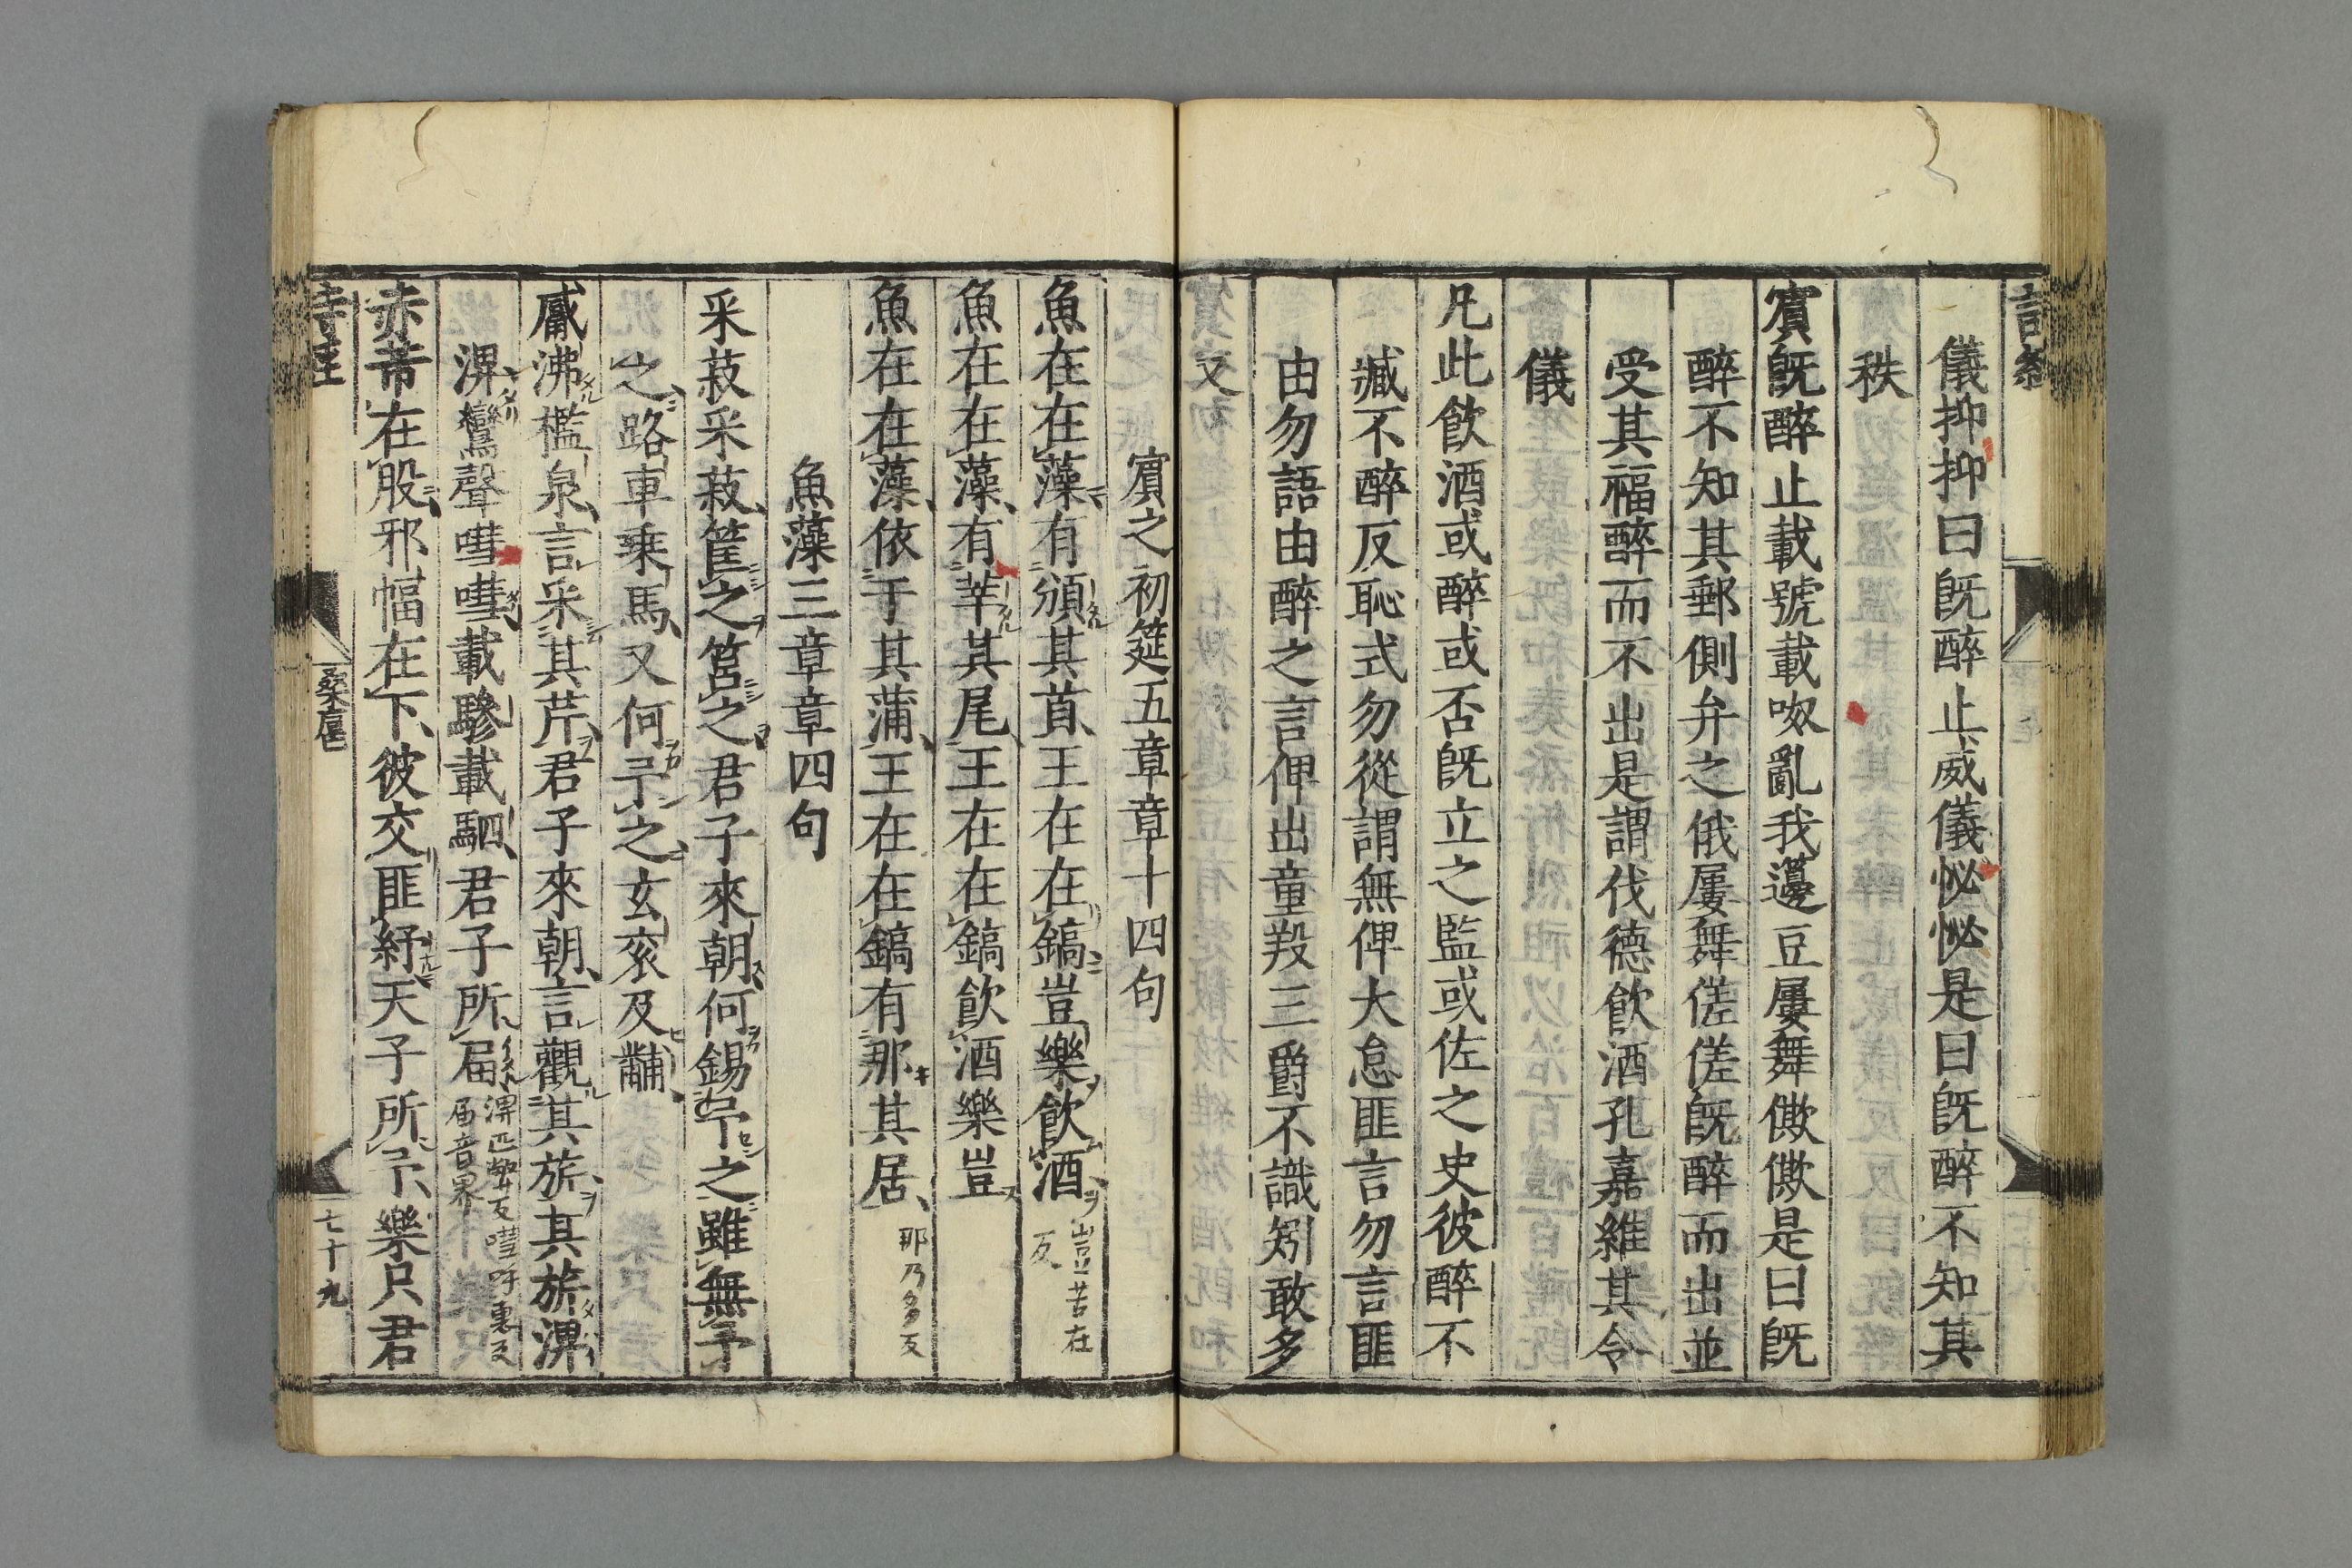 儀抑抑曰旣醉止威儀怭怭是曰旣醉不知其
秩
賓旣醉止載號載呶亂我籩豆屢舞僛僛是曰旣
醉不知其郵側弁之俄屢舞傞傞旣醉而出並
受其福醉而不出是謂伐德飮酒孔嘉維其令
儀
凡此飮酒或醉或否旣立之監或佐之史彼醉不
臧不醉反恥式勿從謂無俾大怠匪言勿言匪
由勿語由醉之言俾出童羖三爵不識矧敢多
又
賓之初筵五章章十四句
魚在在藻有頒其首王在在鎬豈樂飮酒 豈苦在反
魚在在藻有莘其尾王在在鎬飮酒樂豈
魚在在藻依于其蒲王在在鎬有那其居 那乃多反
魚藻三章章四句
采菽采菽筐之筥之君子來朝何錫予之雖無予
之路車乘馬又何予之玄衮及黼
觱沸檻泉言采其芹君子來朝言觀其旂其旂淠
淠鸞聲嘒嘒載驂載駟君子所屆 淠匹弊反嘒呼惠反屆音界
赤芾在股邪幅在下彼交匪紓天子所予樂只君
詩經 桑扈 七十九